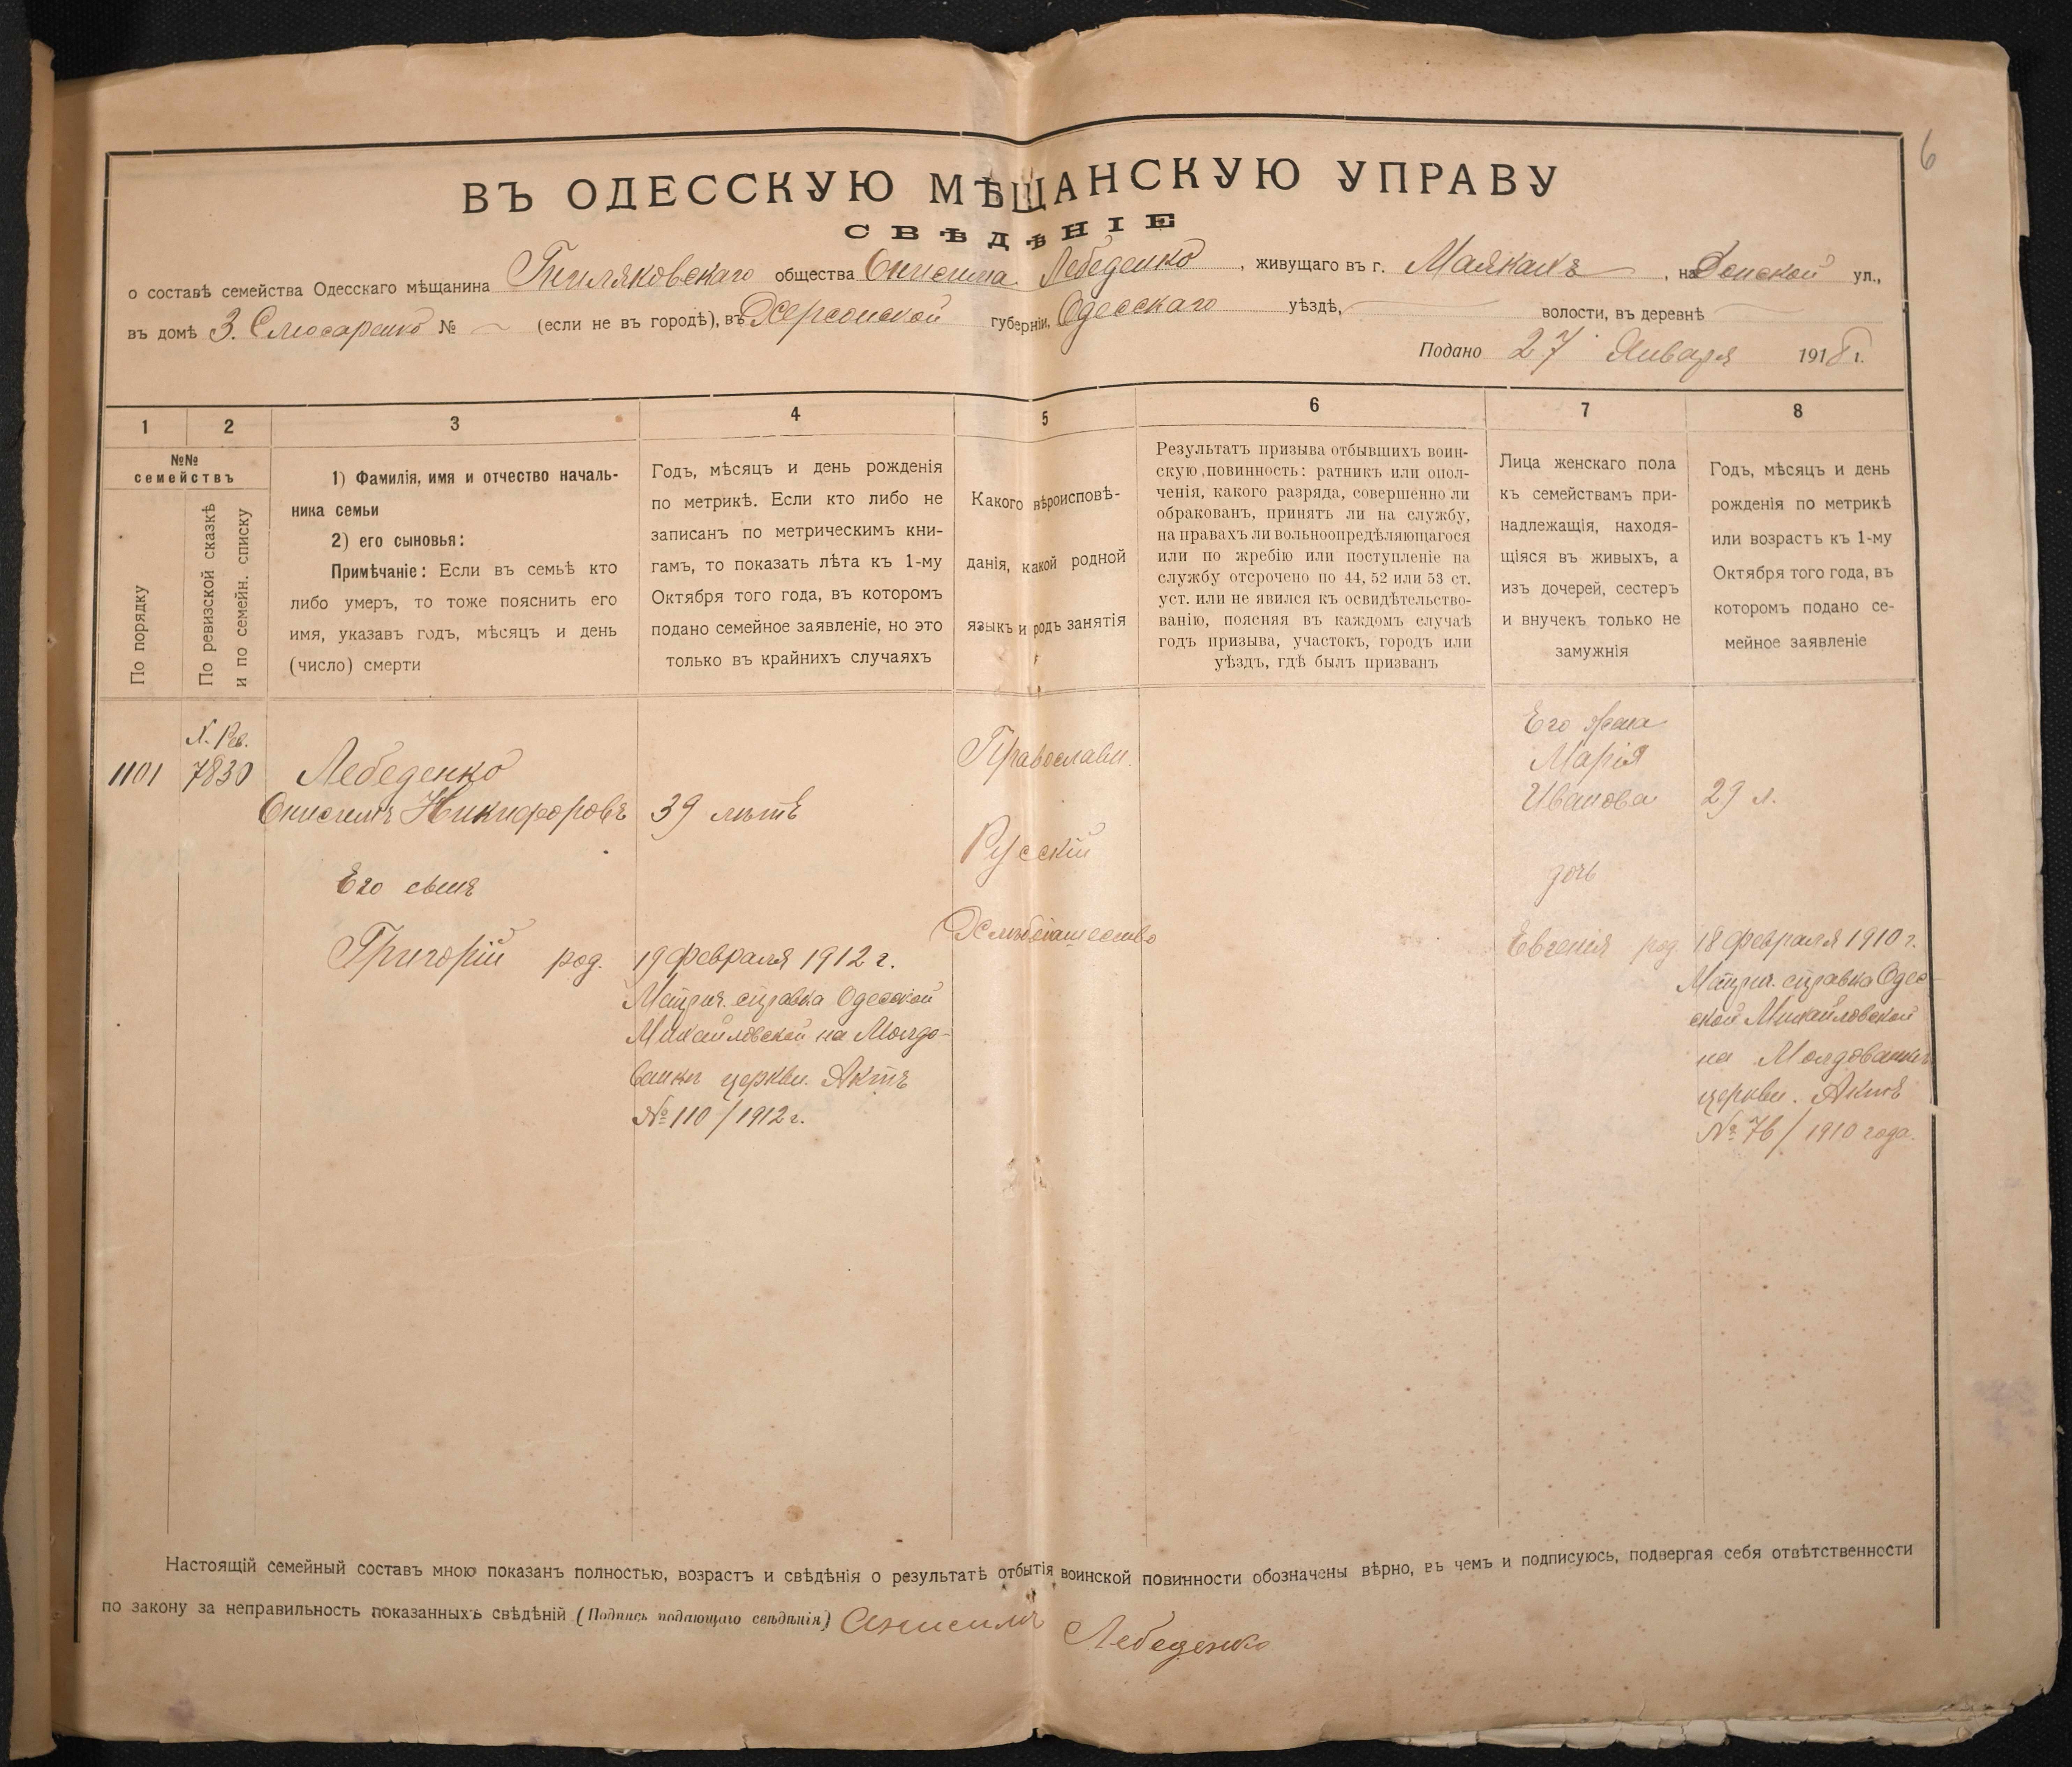 6
ВЪ ОДЕССКУЮ МѢЩАНСКУЮ УПРАВУ
СВѢДѢНІЕ
о составѣ семейства Одесскаго мѣщанина Гниляковскаго общества Онисима Лебеденко, живущаго въ г. Маякахъ, на Донской ул.,
въ домѣ З. Слюсаренко № — (если не въ городѣ), въ Херсонской губерніи, Одесскаго уѣздѣ, — волости, въ деревнѣ —
Подано 27 Января 1918 г.
1 2 3 4 5 6 7 8
№№ семействъ
По порядку
По ревизской сказкѣ и по семейн. списку
1) Фамилія, имя и отчество началь-
ника семьи
2) его сыновья:
Примѣчаніе: Если въ семьѣ кто
либо умеръ, то тоже пояснить его
имя, указавъ годъ, мѣсяцъ и день
(число) смерти
Годъ, мѣсяцъ и день рожденія
по метрикѣ. Если кто либо не
записанъ по метрическимъ кни-
гамъ, то показать лѣта къ 1-му
Октября того года, въ которомъ
подано семейное заявленіе, но это
только въ крайнихъ случаяхъ
Какого вѣроисповѣ-
данія, какой родной
языкъ и родъ занятія
Результатъ призыва отбывшихъ воин-
скую повинность: ратникъ или опол-
ченія, какого разряда, совершенно ли
обракованъ, принятъ ли на службу,
на правахъ ли вольноопредѣляющагося
или по жребію или поступленіе на
службу отсрочено по 44, 52 или 53 ст.
уст. или не явился къ освидѣтельство-
ванію, поясняя въ каждомъ случаѣ
годъ призыва, участокъ, городъ или
уѣздъ, гдѣ былъ призванъ
Лица женскаго пола
къ семействамъ при-
надлежащія, находя-
щіяся въ живыхъ, а
изъ дочерей, сестеръ
и внучекъ только не
замужнія
Годъ, мѣсяцъ и день
рожденія по метрикѣ
или возрастъ къ 1-му
Октября того года, въ
которомъ подано се-
мейное заявленіе
1101
7830
Лебеденко
Онисимъ Никифоровъ
39 лѣтъ
Его сынъ
Григорій род.
19 февраля 1912 г.
Метрич. справка Одесской
Михайловской на Молда-
ванкѣ церкви. Актъ
№ 110 / 1912 г.
Православн.
Русскій
Хлѣбопашество
Его жена
Марія
Иванова
29 л.
дочь
Евгенія род.
18 февраля 1910 г.
Метрич. справка Одес-
ской Михайловской
на Молдованкѣ
церкви. Актъ
№ 76 / 1910 года.
Настоящій семейный составъ мною показанъ полностью, возрастъ и свѣдѣнія о результатѣ отбытія воинской повинности обозначены вѣрно, въ чемъ и подписуюсь, подвергая себя отвѣтственности
по закону за неправильность показанныхъ свѣдѣній (Подпись подающаго свѣдѣнія) Анисимъ Лебеденко